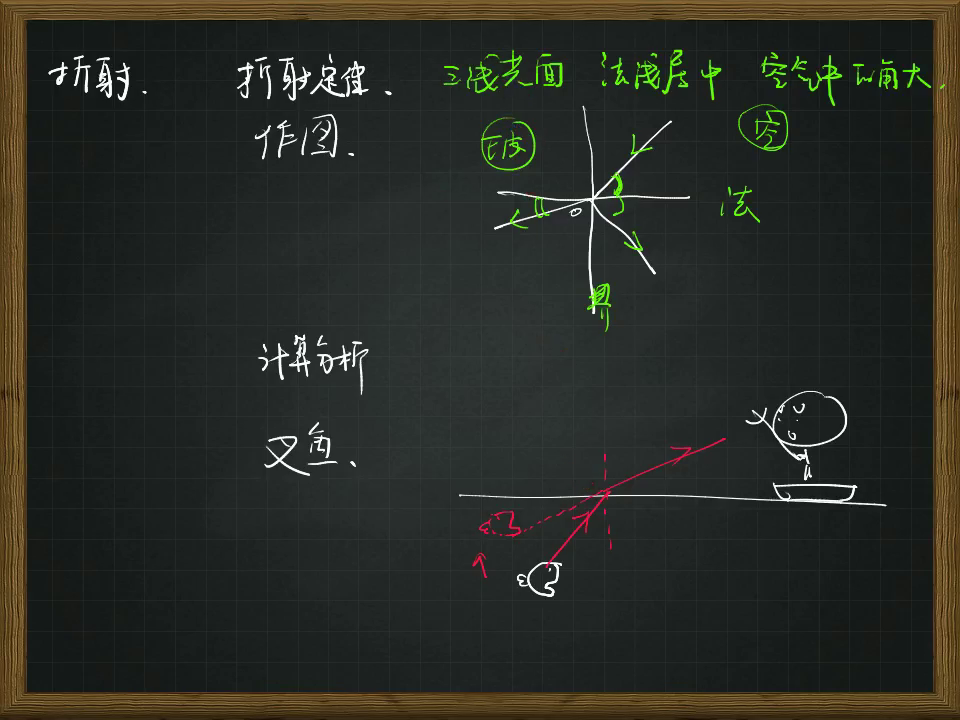 折射. 折射定律、 三线共面 法线居中 空气中角大.
作图.
玻 空
法
O
界
计算分析
叉鱼、